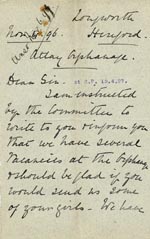 Longworth
Nov. 96. Hereford.
Attay Orphanage.
Dear Sir.
I am instructed
by the Committee to
write to you & inform you
that we have several
Vacancies at the Orphanage
& should be glad if you
would send us some
of your girls. We have